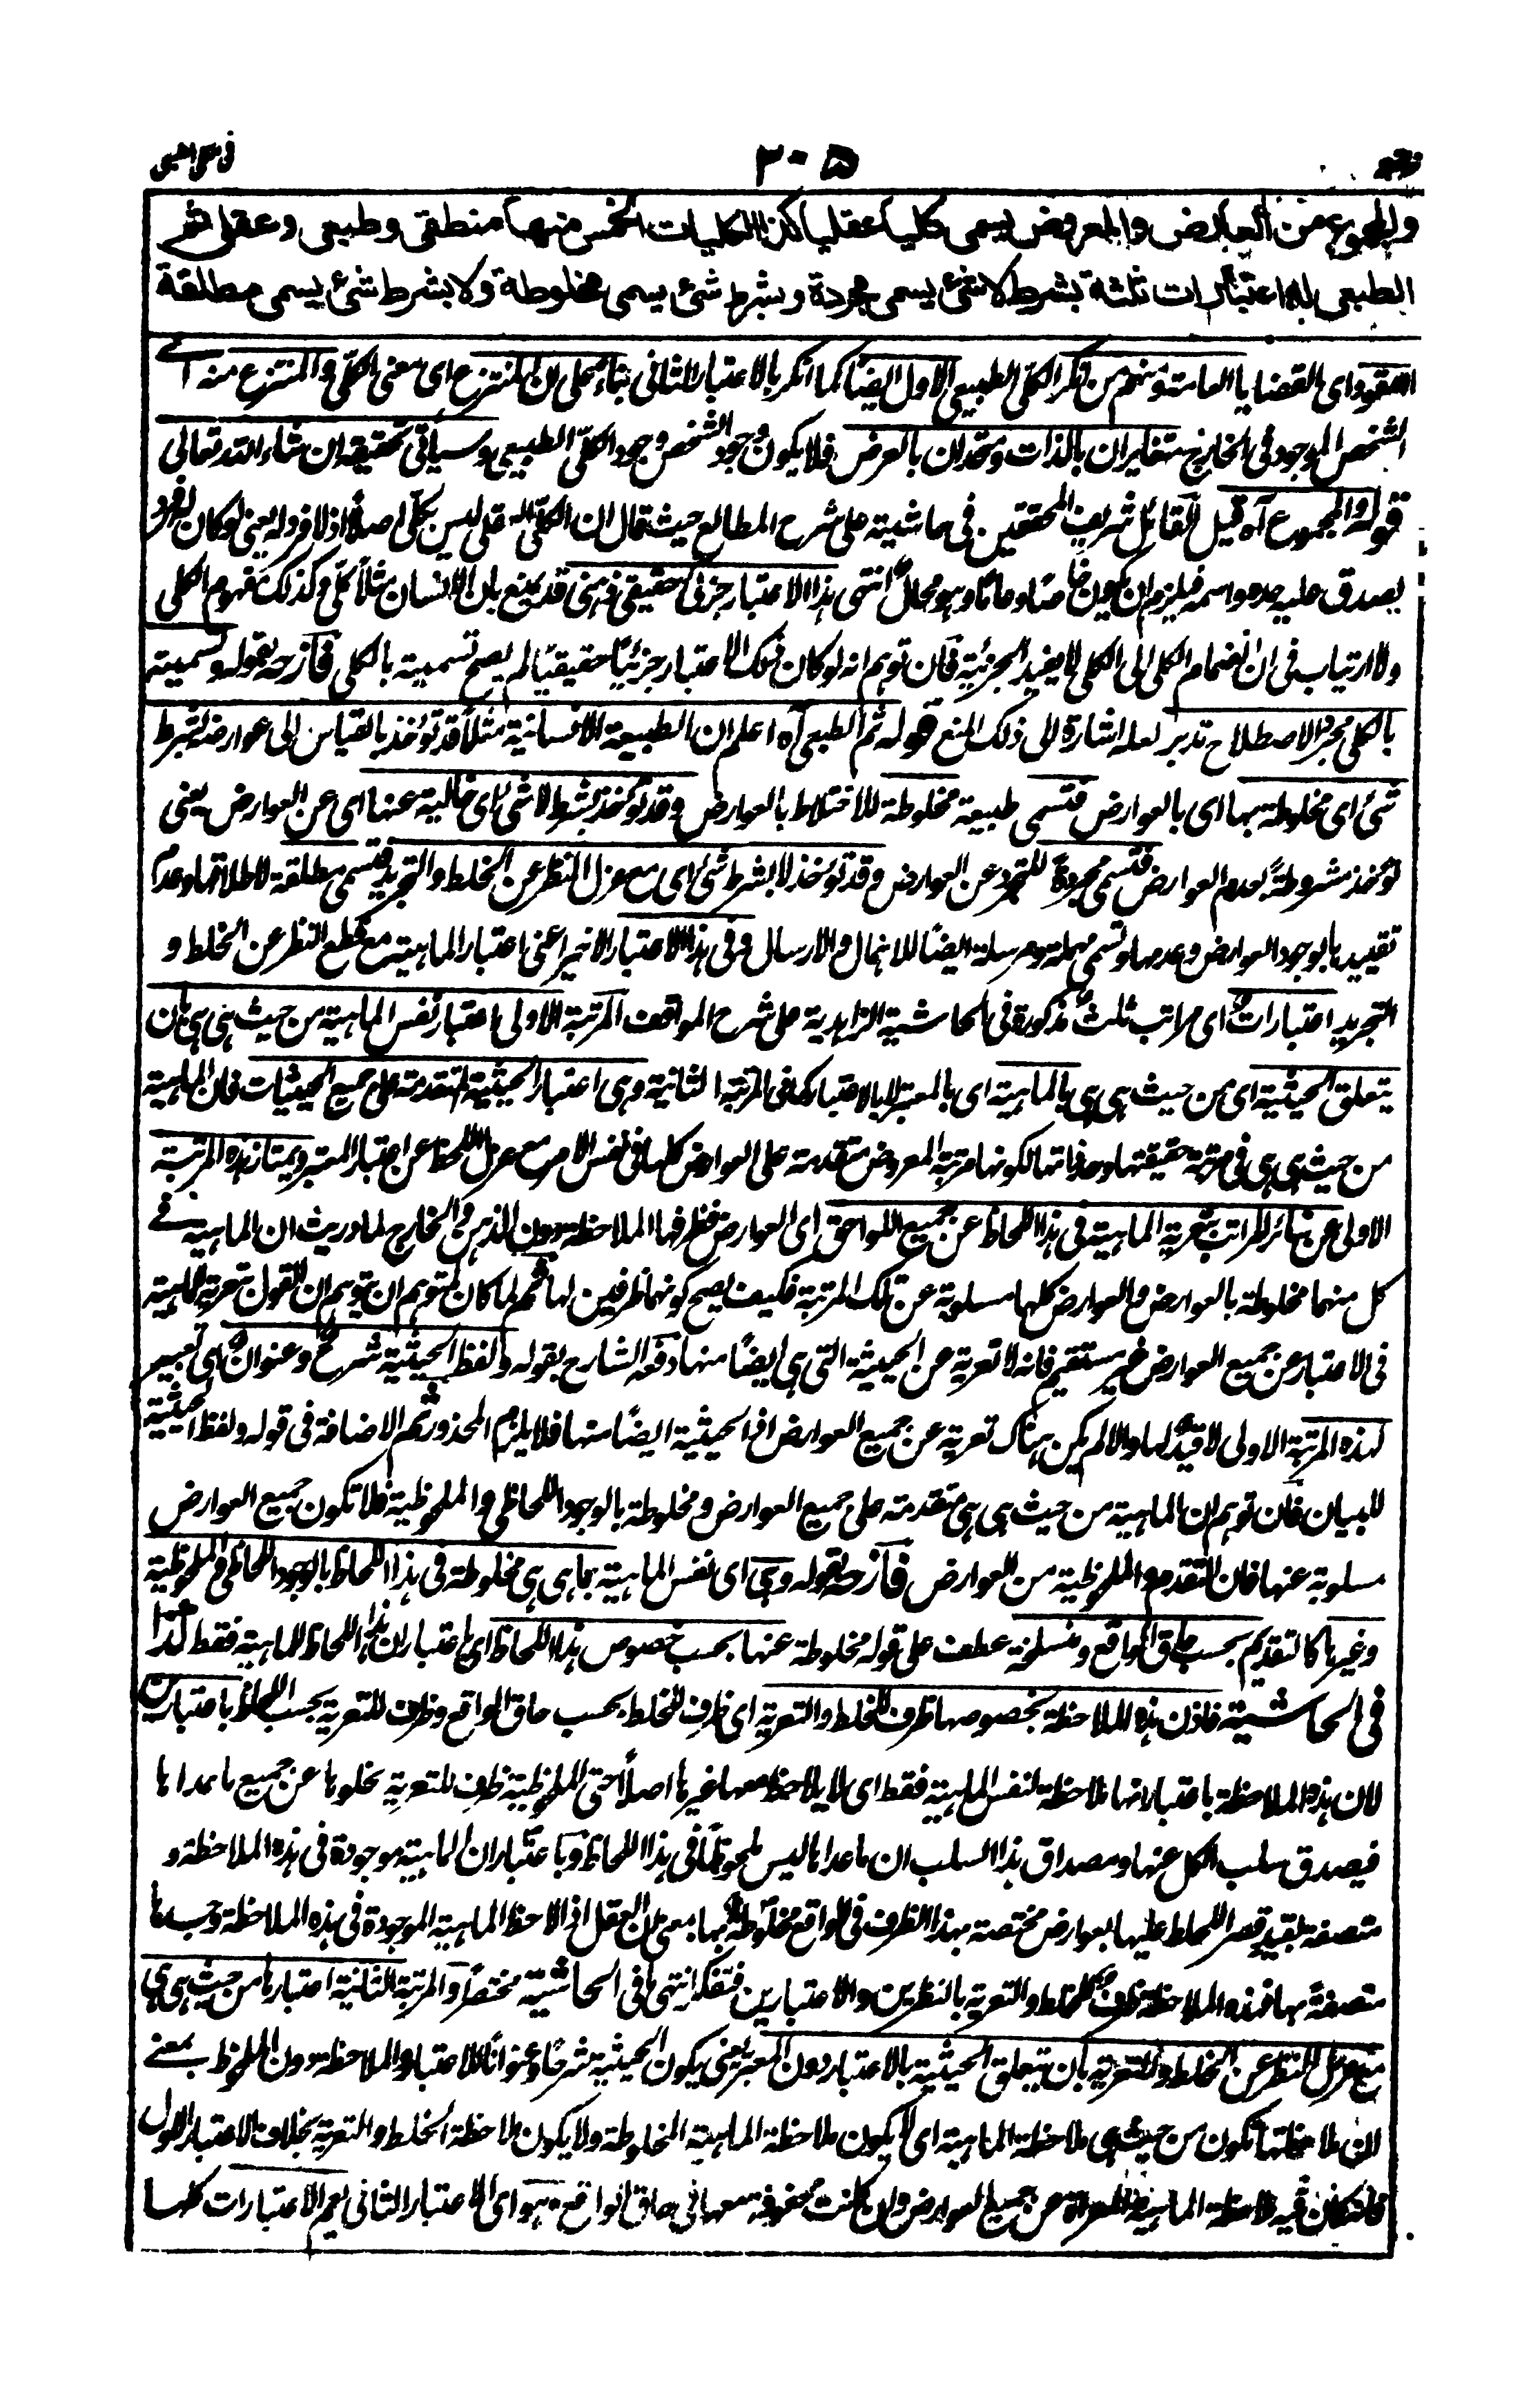 ٣٠٥
والمجموع من العارض والمعروض يسمى كليا عقليا كذا الكليات الخمس منها منطقي وطبعي وعقلي ثم
الطبعي له اعتبارات ثلثة بشرط لا شئ يسمى مجردة وبشرط شئ يسمى مخلوطة ولا بشرط شئ يسمى مطلقة
العقود اى القضايا العامة ومنهم من انكر الكلى الطبيعى الاول ايضا كما انكر بالاعتبار الثانى بناء على ان المنتزع اى معنى الكلى والمنتزع منه اے
الشخص الموجود فى الخارج متغايران بالذات ومتحدان بالعرض فلا يكون وجود الشخص وجود الكلى الطبيعى وسياتى تحقيقه ان شاء الله تعالى
قوله والمجموع آه قيل القائل شريف المحققين فى حاشيته على شرح المطالع حيث قال ان الكلى العقلى ليس بكلى اصلا اذ لا فرد له يعنى لو كان له فرد
يصدق عليه حده واسمه فيلزم ان يكون خاصا وعاما وهو محال انتهى بهذا الاعتبار جزئى حقيقى قد يمنع بان الانسان مثلا كلى وكذلك مفهوم الكلى
ولا ارتياب فى ان انضمام الكلى الى الكلى لا يفيد الجزئية فان توهم انه لو كان ذلك الاعتبار جزئيا حقيقيا لم يصح تسميته بالكلى فازحه بقوله وتسميته
بالكلى مجرد الاصطلاح تدبر لعله اشارة الى ذلك المنع قوله ثم الطبعى آه اعلم ان الطبيعة الانسانية مثلا قد توخذ بالقياس الى عوارضه بشرط
شئ اى مخلوطة بها اى بالعوارض فتسمى طبيعة مخلوطة للاختلاط بالعوارض وقد توخذ بشرط لا شئ اى خالية عنها اى عن العوارض يعنى
توخذ مشروطة بعدم العوارض فتسمى مجردة للتجرد عن العوارض وقد توخذ لا بشرط شئ اى مع عزل النظر عن الخلط والتجريد فتسمى مطلقة لاطلاقها وعدم
تقييدها بوجود العوارض وعدمها وتسمى مهملة ومرسلة ايضا للاهمال والارسال وفى هذا الاعتبار الاخير اعنى اعتبار الماهية مع قطع النظر عن الخلط و
التجريد اعتبارات اى مراتب ثلث مذكورة فى الحاشية الزاهدية على شرح المواقف المرتبة الاولى اعتبار نفس الماهية من حيث هى هى بان
يتعلق الحيثية اى من حيث هى هى بالماهية اى بالمعتبر لا بالاعتبار كما فى المرتبة الثانية وهى اعتبار الحيثية المتقدمة على جميع الحيثيات فان الماهية
من حيث هى هى فى مرتبة حقيقتها وذاتها لكونها مرتبة المعروض متقدمة على العوارض كلها فى نفس الامر مع عزل اللحظ عن اعتبار المعتبر ويمتاز هذه المرتبة
الاولى عن سائر المراتب بتعرية الماهية فى هذا اللحاظ عن جميع اللواحق اى العوارض فظرفها الملاحظة دون الذهن والخارج لما دريت ان الماهية فے
كل منهما مخلوطة بالعوارض والعوارض كلها مسلوبة عن تلك المرتبة فكيف يصح كونهما ظرفين لها ثم لما كان لمتوهم ان يتوهم ان القول بتعرية الماهية
فى الاعتبار عن جميع العوارض غير مستقيم فانه لا تعرية عن الحيثية التى هى ايضا منها دفعه الشارح بقوله ولفظ الحيثية شرح وعنوان اى تعبير
لهذه المرتبة الاولى لا قيد لها والا لم يكن هناك تعرية عن جميع العوارض اذ الحيثية ايضا منها فلا يلزم المحذور ثم الاضافة فى قوله ولفظ الحيثية
للبيان فان توهم ان الماهية من حيث هى هى متقدمة على جميع العوارض ومخلوطة بالوجود اللحاظى والملحوظية فلا تكون جميع العوارض
مسلوبة عنها فان التقدم والملحوظية من العوارض فازحه بقوله وهى اى نفس الماهية بما هى هى مخلوطة فى هذا اللحاظ بالوجود اللحاظى والملحوظية
وغيرها كالتقدم بحسب حاق الواقع ومنسلخة عطف على قوله مخلوطة عنها بحسب خصوص هذا اللحاظ اى باعتبار ان هذا اللحاظ للماهية فقط كذا
فى الحاشية فاذن هذه الملاحظة بخصوصها ظرف للخلط والتعرية اى ظرف للخلط بحسب حاق الواقع وظرف للتعرية بحسب اللحاظ باعتبارين
لان هذه الملاحظة باعتبار انها ملاحظة لنفس الماهية فقط اى لا يلاحظ معها غيرها اصلا حتى الملحوظية ظرف للتعرية بخلوها عن جميع ما عداها
فيصدق سلب الكل عنها ومصداق هذا السلب ان ما عداها ليس ملحوظا فى هذا اللحاظ وباعتبار ان الماهية موجودة فى هذه الملاحظة و
متصفة بقيد قصر اللحاظ عليها بعوارض مختصة بهذا الظرف فى الواقع مخلوطة بها بمعنى ان العقل اذا لاحظ الماهية الموجودة فى هذه الملاحظة وجدها
متصفة بها فهذه الملاحظة ظرف للخلط والتعرية بالنظرين والاعتبارين فتفكر انتهى ما فى الحاشية مختصرا والمرتبة الثانية اعتبارها من حيث هى هى
مع عزل النظر عن الخلط والتعرية بان يتعلق الحيثية بالاعتبار دون المعتبر يعنى يكون الحيثية شرحا وعنوانا للاعتبار والملاحظة دون الملحوظ بمعنے
ان ملاحظتها تكون من حيث هى ملاحظة الماهية اى لا يكون ملاحظة الماهية المخلوطة ولا يكون ملاحظة الخلط والتعرية بخلاف الاعتبار الاول
فانه كان فيه ملاحظة الماهية المعراة عن جميع العوارض وان كانت محفوفة معها فى حاق الواقع وهو اى الاعتبار الثانى يعم الاعتبارات كلها